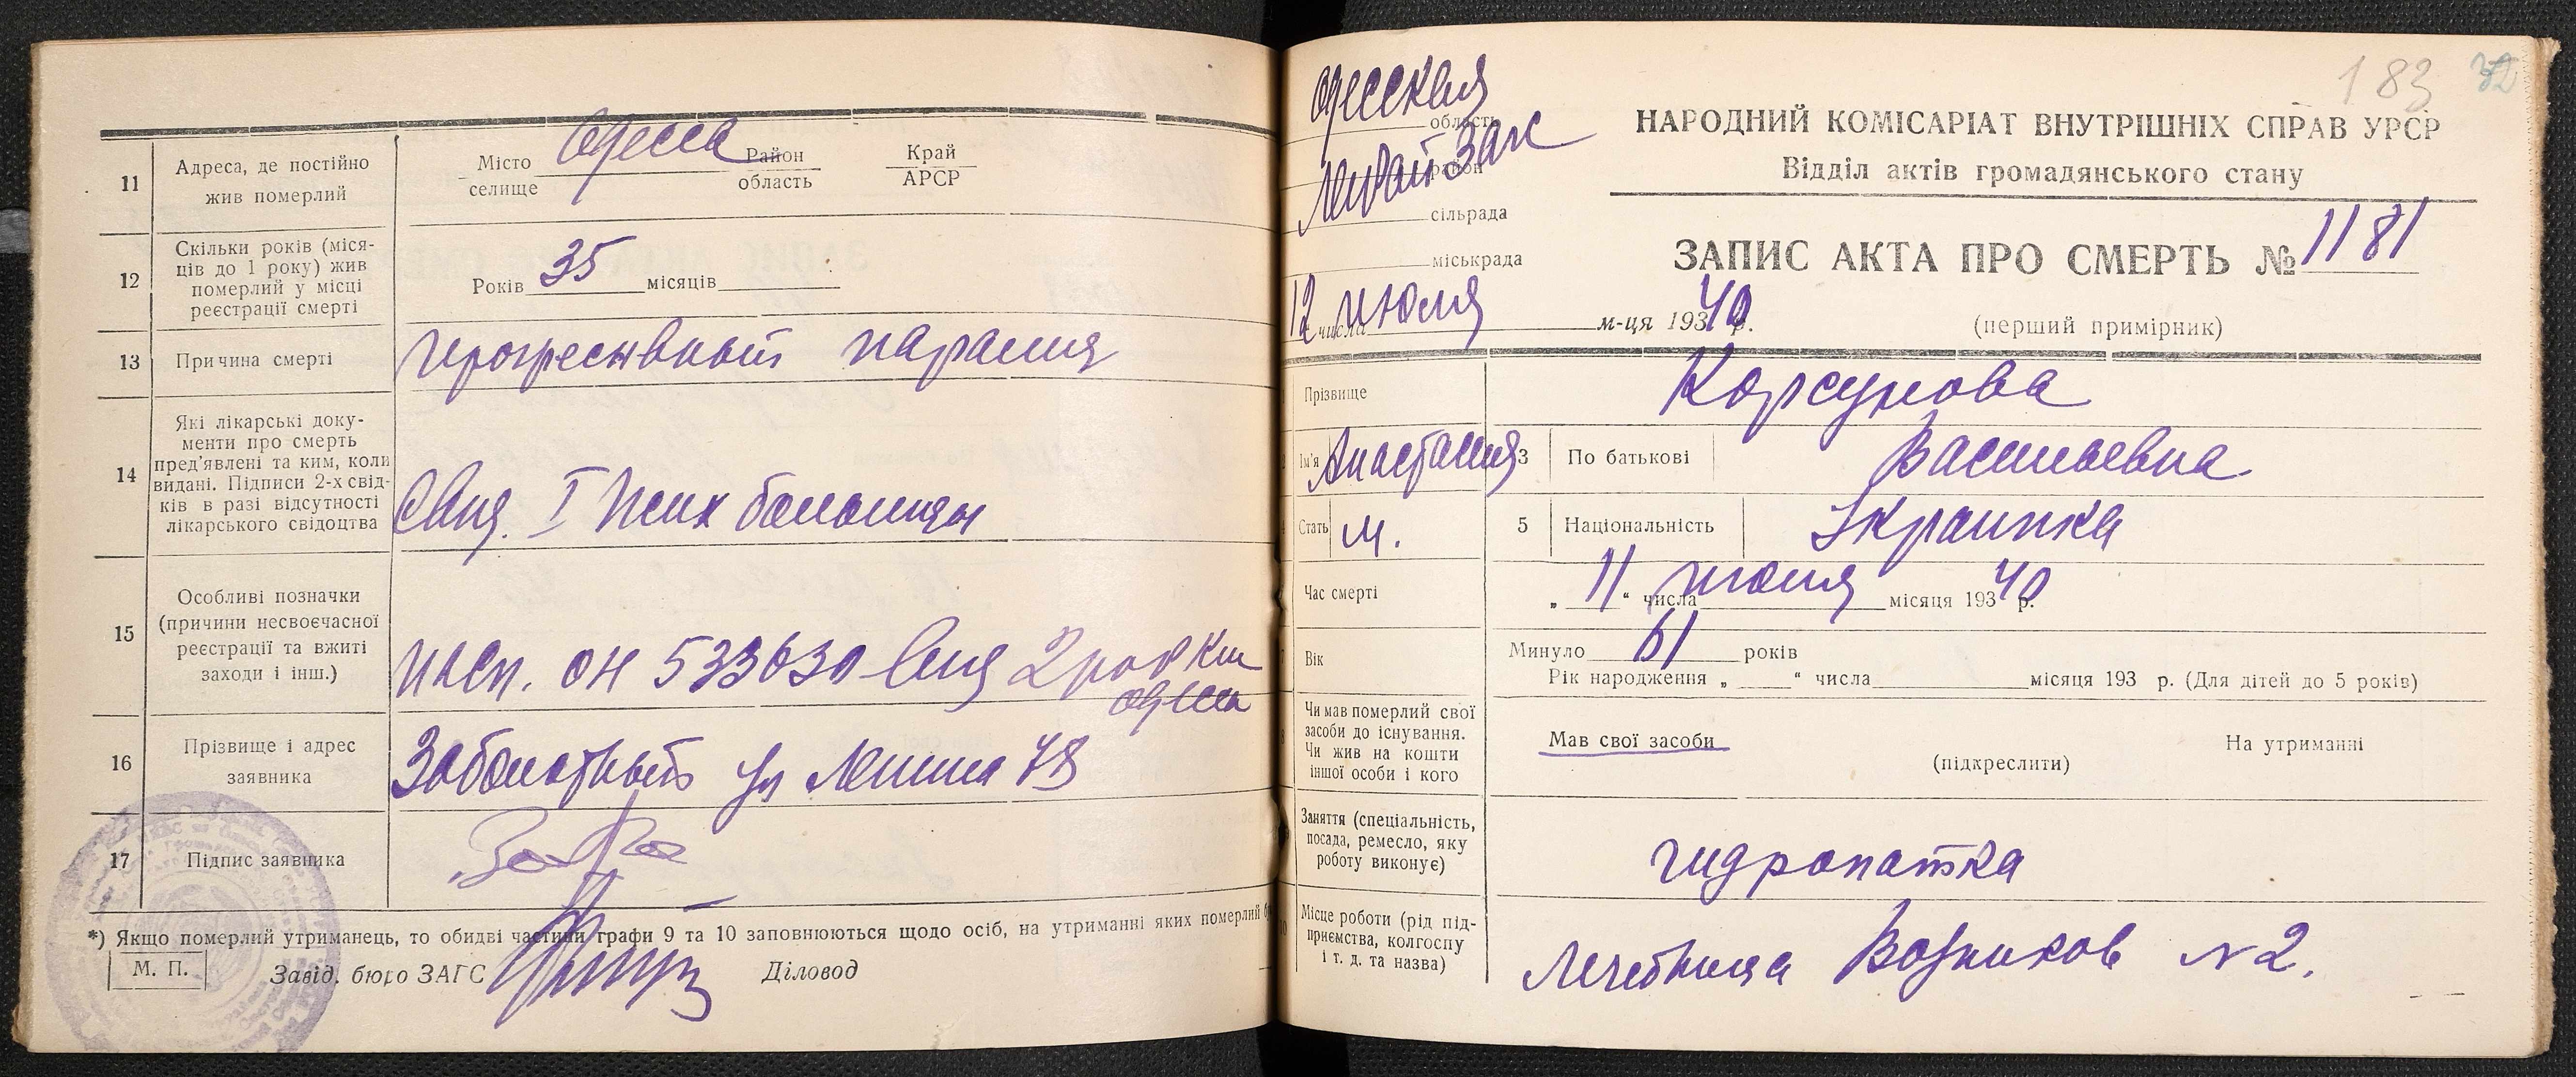 11
Адреса, де постійно
жив померлий
Місто Одесса Район Край
селище область АРСР
12
Скільки років (міся-
ців до 1 року) жив
померлий у місці
реєстрації смерті
Років 35 місяців
13
Причина смерті
прогресивный паралич
14
Які лікарські доку-
менти про смерть
пред'явлені та ким, коли
видані. Підписи 2-х свід-
ків в разі відсутності
лікарського свідоцтва
Свид. I Псих больницы
15
Особливі позначки
(причини несвоєчасної
реєстрації та вжиті
заходи і інш.)
пасп. ОН 533630
Одесса
16
Прізвище і адрес
заявника
Заболотный ул Ленина 48
17
Підпис заявника
*) Якщо померлий утриманець, то обидві частини графи 9 та 10 заповнюються щодо осіб, на утриманні яких померлий
М. П.
Завід. бюро ЗАГС Діловод
183 32
Одесская
область
Ленрай Загс
район
сільрада
міськрада
12 числа июля м-ця 1940 р.
НАРОДНИЙ КОМІСАРІАТ ВНУТРІШНІХ СПРАВ УРСР
Відділ актів громадянського стану
ЗАПИС АКТА ПРО СМЕРТЬ № 1181
(перший примірник)
Прізвище
Корсунова
Ім'я Анастасия 3 По батькові Васильевна
Стать м. 5 Національність Украинка
Час смерті
„ 11 “ числа июля місяця 1940 р.
Вік
Минуло 61 років
Рік народження „ “ числа місяця 193 р. (Для дітей до 5 років)
Чи мав померлий свої
засоби до існування.
Чи жив на кошти
іншої особи і кого
Мав свої засоби На утриманні
(підкреслити)
Заняття (спеціальність,
посада, ремесло, яку
роботу виконує)
гидропатка
10
Місце роботи (рід під-
приємства, колгоспу
і т. д. та назва)
Лечебница Водников N 2.